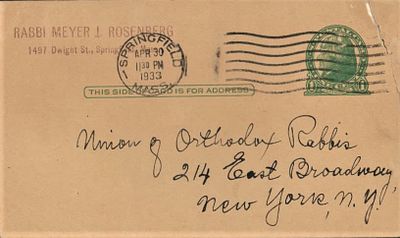 RABBI MEYER J. ROSENBERG
1497 Dwight St., Spring
SPRINGFIELD
APR 30
1130 PM
1933
MASS.
THIS SIDE OF CARD IS FOR ADDRESS
Union of Orthodox Rabbis
214 East Broadway,
New York, N.Y.